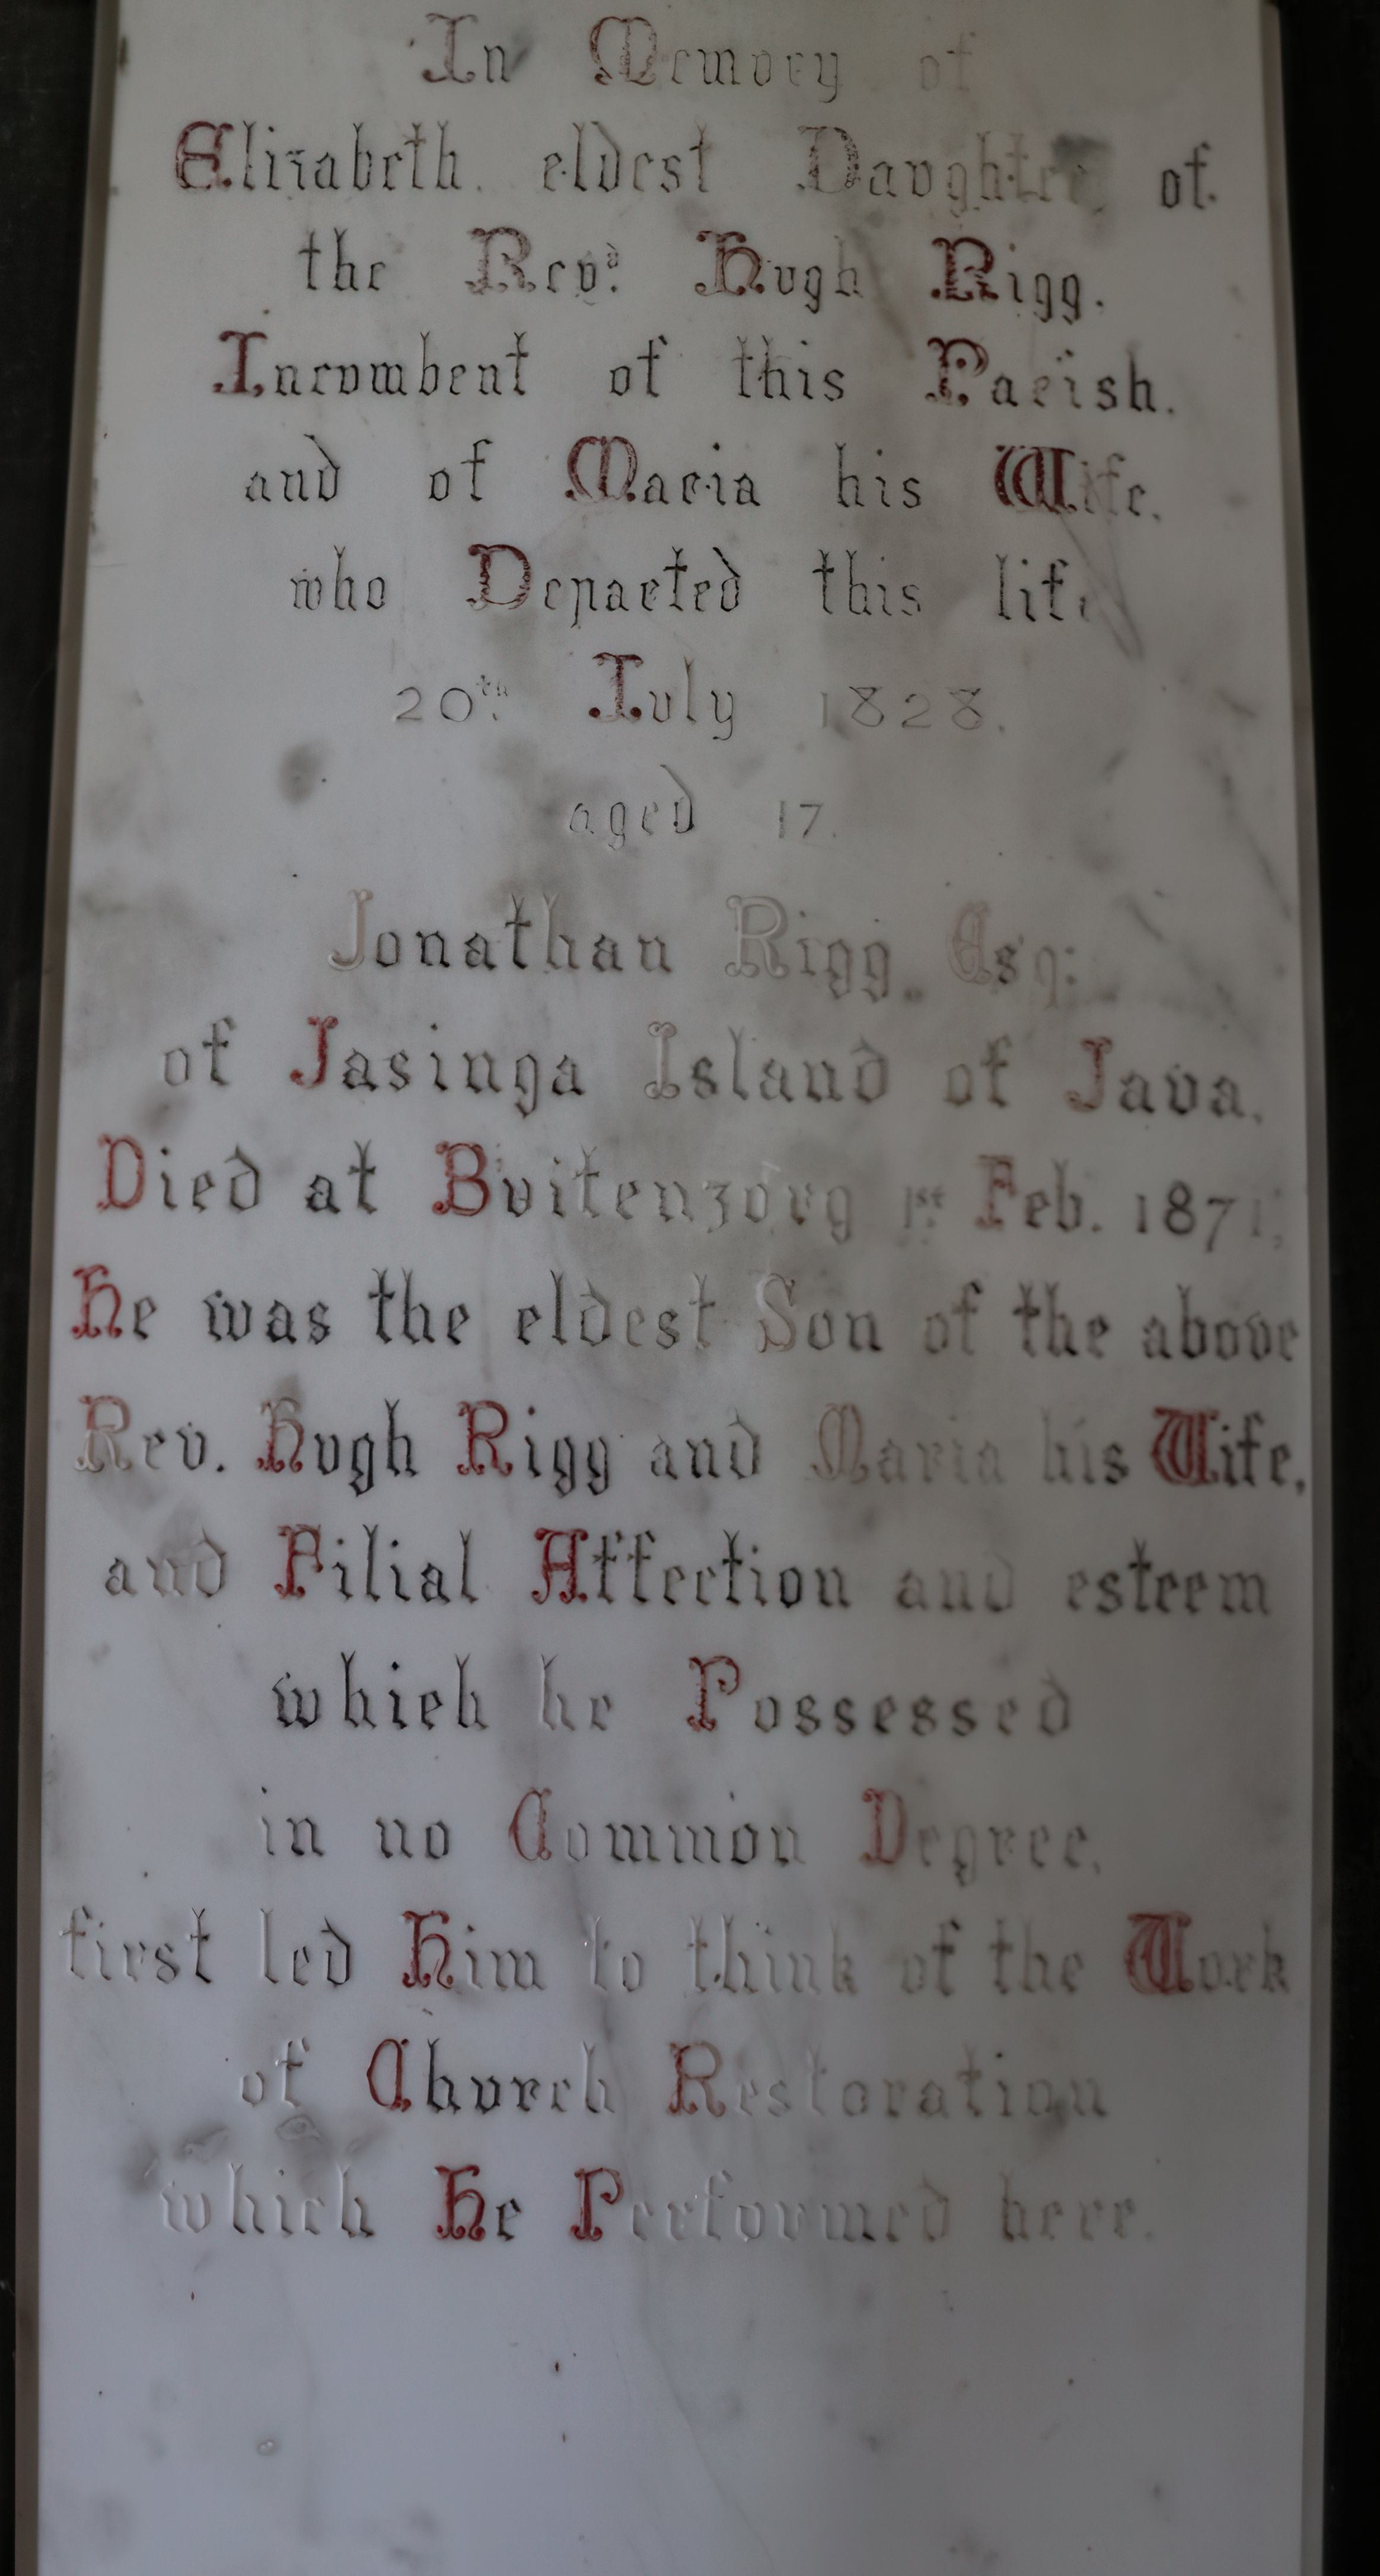 In Memory of
Elizabeth. eldest Daughter of
the Revd. Hugh Rigg.
Incumbent of this Parish.
and of Maria his Wife.
who Departed this life
20th. July 1828.
aged 17.
Jonathan Rigg. Esq:
of Jasinga Island of Java.
Died at Buitenzorg 1st Feb. 1871;
He was the eldest Son of the above
Rev. Hugh Rigg and Maria his Wife,
and Filial Affection and esteem
which he Possessed
in no Common Degree,
first led Him to think of the Work
of Church Restoration
which He Performed here.